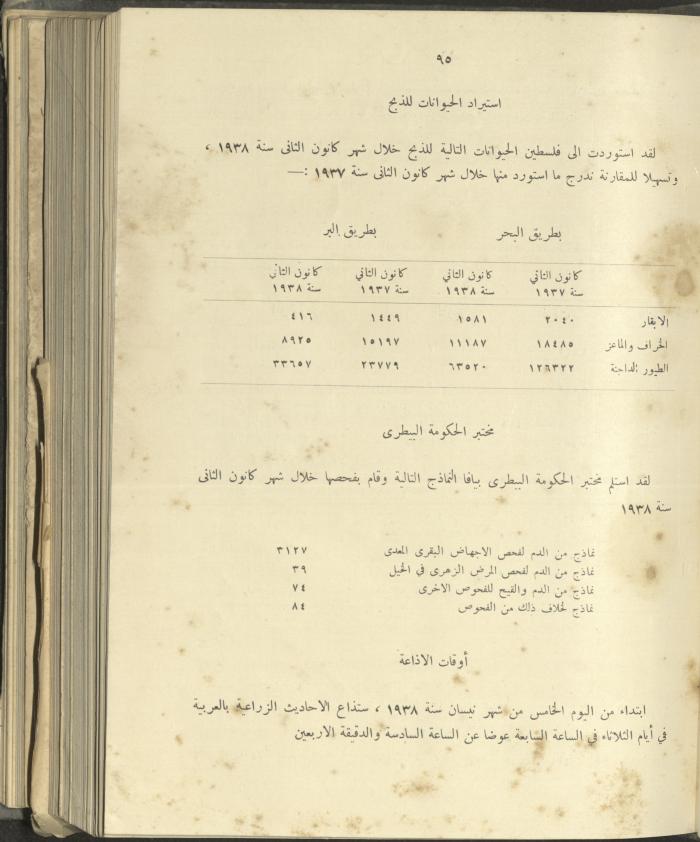 ٩٥
استيراد الحيوانات للذبح
لقد استوردت الى فلسطين الحيوانات التالية للذبح خلال شهر كانون الثانى سنة ١٩٣٨ ،
وتسهيلا للمقارنة ندرج ما استورد منها خلال شهر كانون الثانى سنة ١٩٣٧ :—
بطريق البحر بطريق البر
كانون الثاني كانون الثاني كانون الثاني كانون الثاني
سنة ١٩٣٧ سنة ١٩٣٨ سنة ١٩٣٧ سنة ١٩٣٨
الابقار ٢٠٤٠ ١٥٨١ ١٤٤٩ ٤١٦
الخراف والماعز ١٨٤٨٥ ١١١٨٧ ١٥١٩٧ ٨٩٢٥
الطيور الداجنة ١٢٦٣٢٢ ٦٣٥٢٠ ٢٣٧٧٩ ٣٣٦٥٧
مختبر الحكومة البيطرى
لقد استلم مختبر الحكومة البيطرى بيافا النماذج التالية وقام بفحصها خلال شهر كانون الثانى
سنة ١٩٣٨
نماذج من الدم لفحص الاجهاض البقرى المعدى ٣١٢٧
نماذج من الدم لفحص المرض الزهرى في الخيل ٣٩
نماذج من الدم والقيح للفحوص الاخرى ٧٤
نماذج لخلاف ذلك من الفحوص ٨٤
أوقات الاذاعة
ابتداء من اليوم الخامس من شهر نيسان سنة ١٩٣٨ ، ستذاع الاحاديث الزراعية بالعربية
في أيام الثلاثاء في الساعة السابعة عوضا عن الساعة السادسة والدقيقة الاربعين